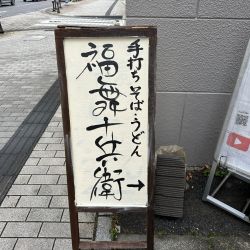 手打ちそば・うどん
福舞十兵衛
→